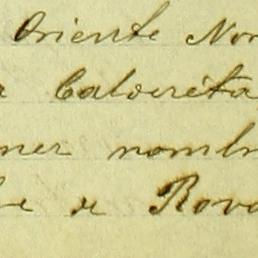 Oriente Nor
a Caldereta
mer nombr
be de Rova